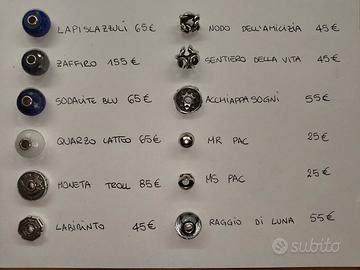 LAPISLAZZULI 65€
ZAFFIRO 155€
SODALITE BLU 65€
QUARZO LATTEO 65€
MONETA TROLL 85€
LABIRINTO 45€
NODO DELL'AMICIZIA 45€
SENTIERO DELLA VITA 45€
ACCHIAPPASOGNI 55€
MR PAC 25€
MS PAC 25€
RAGGIO DI LUNA 55€
subito